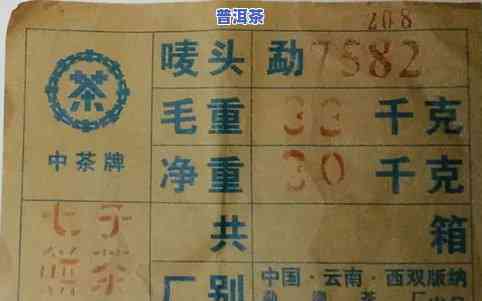 普洱茶
208
唛头 勐7582
茶
中茶牌
毛重 33 千克
净重 30 千克
七子
饼茶
共 箱
厂别
中国·云南·西双版纳
勐海茶厂